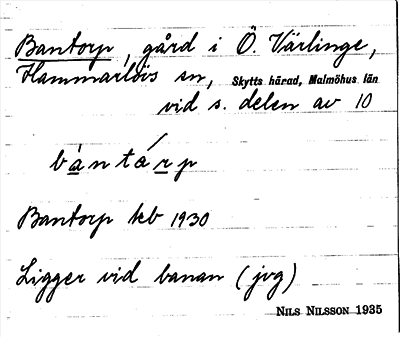 Bantorp, gård i Ö. Värlinge,
Hammarlövs sn, Skytts härad, Malmöhus län
vid s. delen av 10
bàntárp
Bantorp kb 1930
Ligger vid banan (jvg)
NILS NILSSON 1935